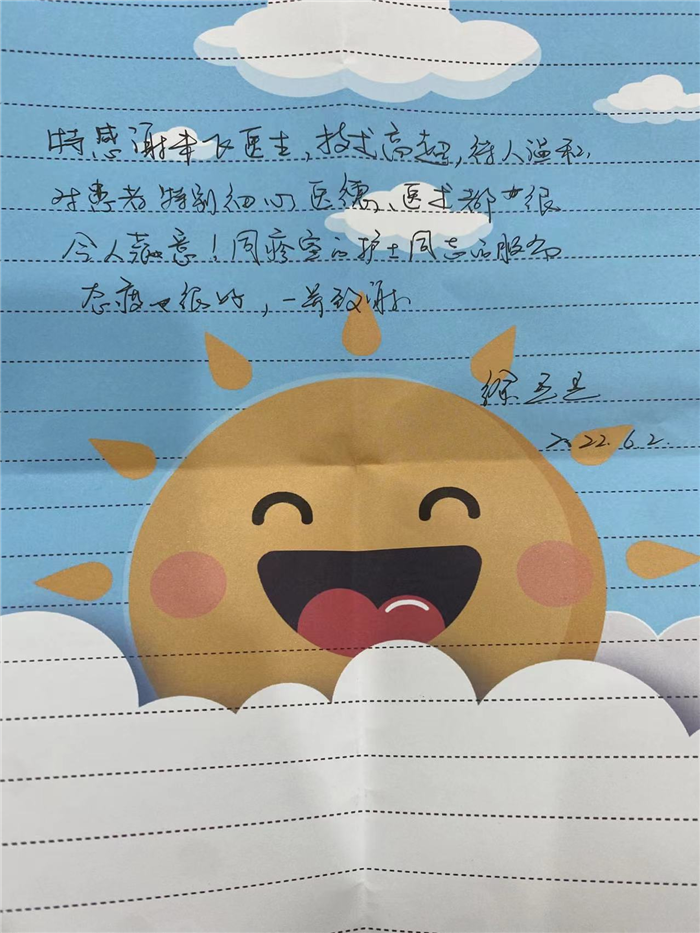 特感谢医生,技术高超,待人温和,
对患者特别细心医德、医术都很
令人满意!同诊室的护士同志的服务
态度也很好,一并致谢
徐
2022.6.2.